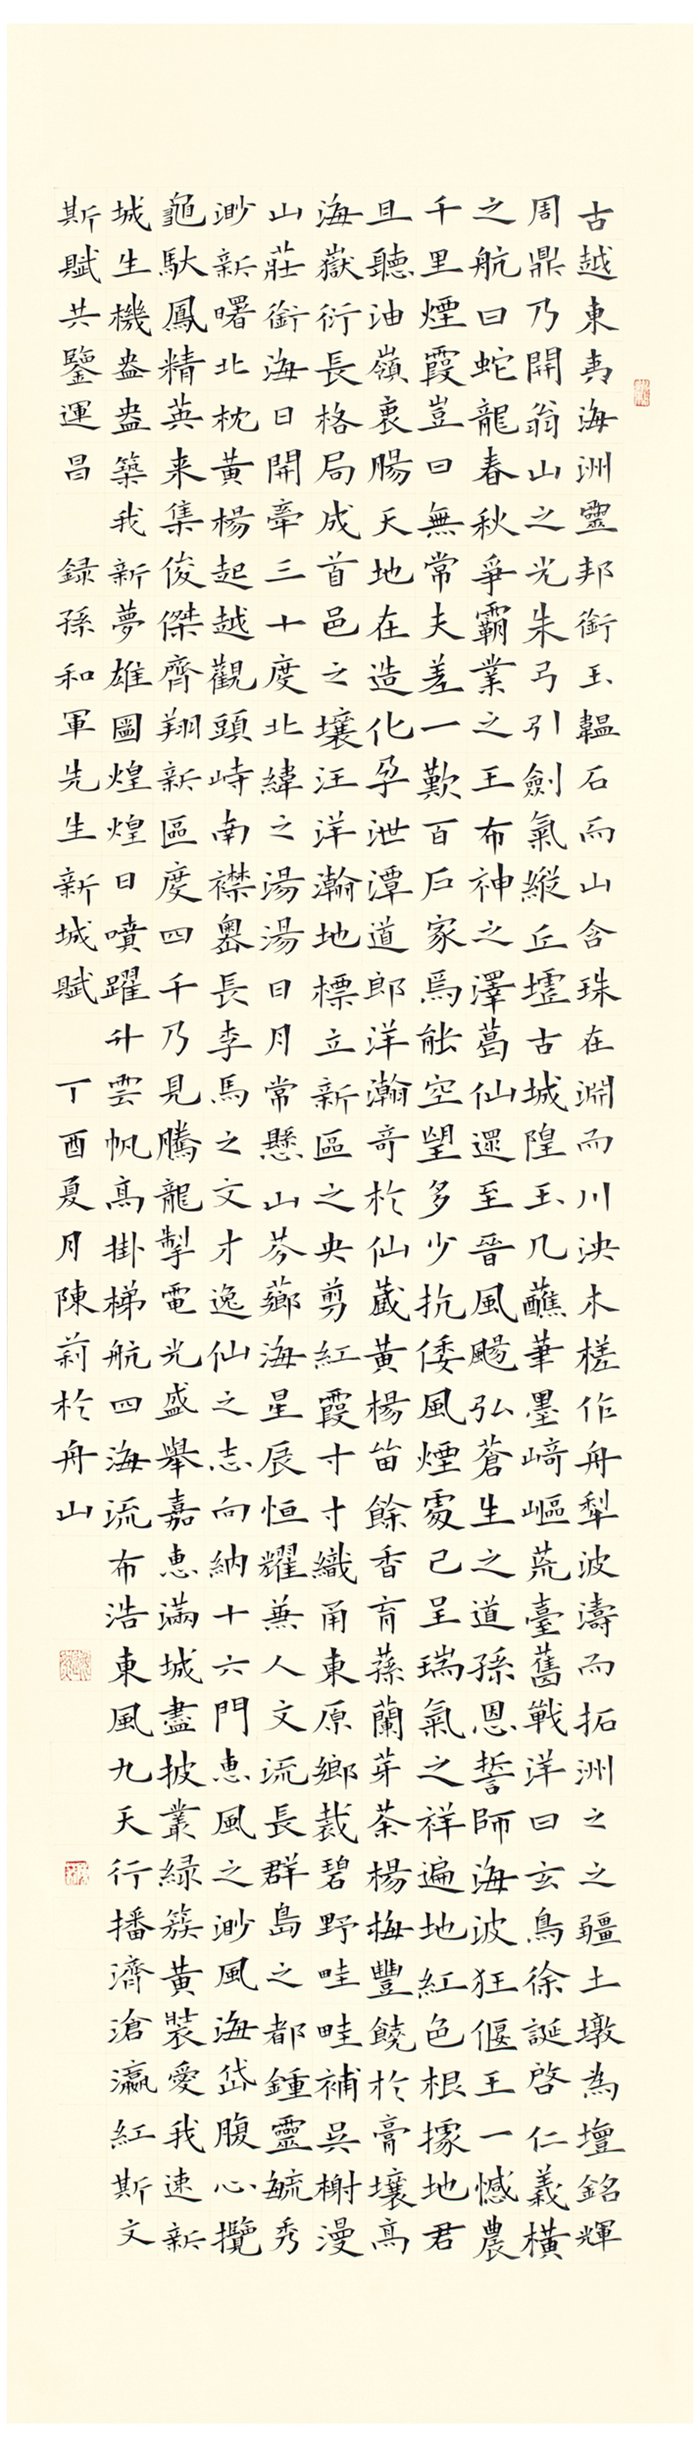 古越東夷海洲靈邦銜玉韞石而山含珠在淵而川泱木槎作舟犁波濤而拓洲之之疆土墩為壇銘輝
周鼎乃開翁山之光朱弓引劍氣縱丘壚古城隍玉几蘸筆墨﨑嶇荒臺舊戰洋曰玄鳥徐誕啓仁義橫
之航曰蛇龍春秋爭霸業之王布神之澤葛仙還至晉風颺弘蒼生之道孫恩誓師海波狂偃王一憾農
千里煙霞豈曰無常夫差一歎百戶家焉能空望多少抗倭風煙處已呈瑞氣之祥遍地紅色根據地君
且聽油嶺衷腸天地在造化孕泄潭道郎洋瀚奇於仙藏黃楊笛餘香育蓀蘭芽茶楊梅豐饒於膏壤高
海嶽衍長格局成首邑之壤汪洋瀚地標立新區之央剪紅霞寸寸織甬東原鄉裁碧野畦畦補吳榭漫
山莊銜海日開牽三十度北緯之湯湯日月常懸山芬薌海星辰恒耀無人文流長群島之都鍾靈毓秀
渺新曙北枕黃楊起越觀頭峙南襟嶴長李馬之文才逸仙之志向納十六門惠風之渺風海岱腹心攬
龜馱鳳精英来集俊傑齊翔新區度四千乃見騰龍掣電光盛舉嘉惠滿城盡披叢緑簇黃裝愛我速新
城生機盎盎築我新夢雄圖煌煌日噴躍升雲帆高掛梯航四海流布浩東風九天行播濟滄瀛紅斯文
斯賦共鑒運昌 録孫和軍先生新城賦 丁酉夏月陳莉於舟山